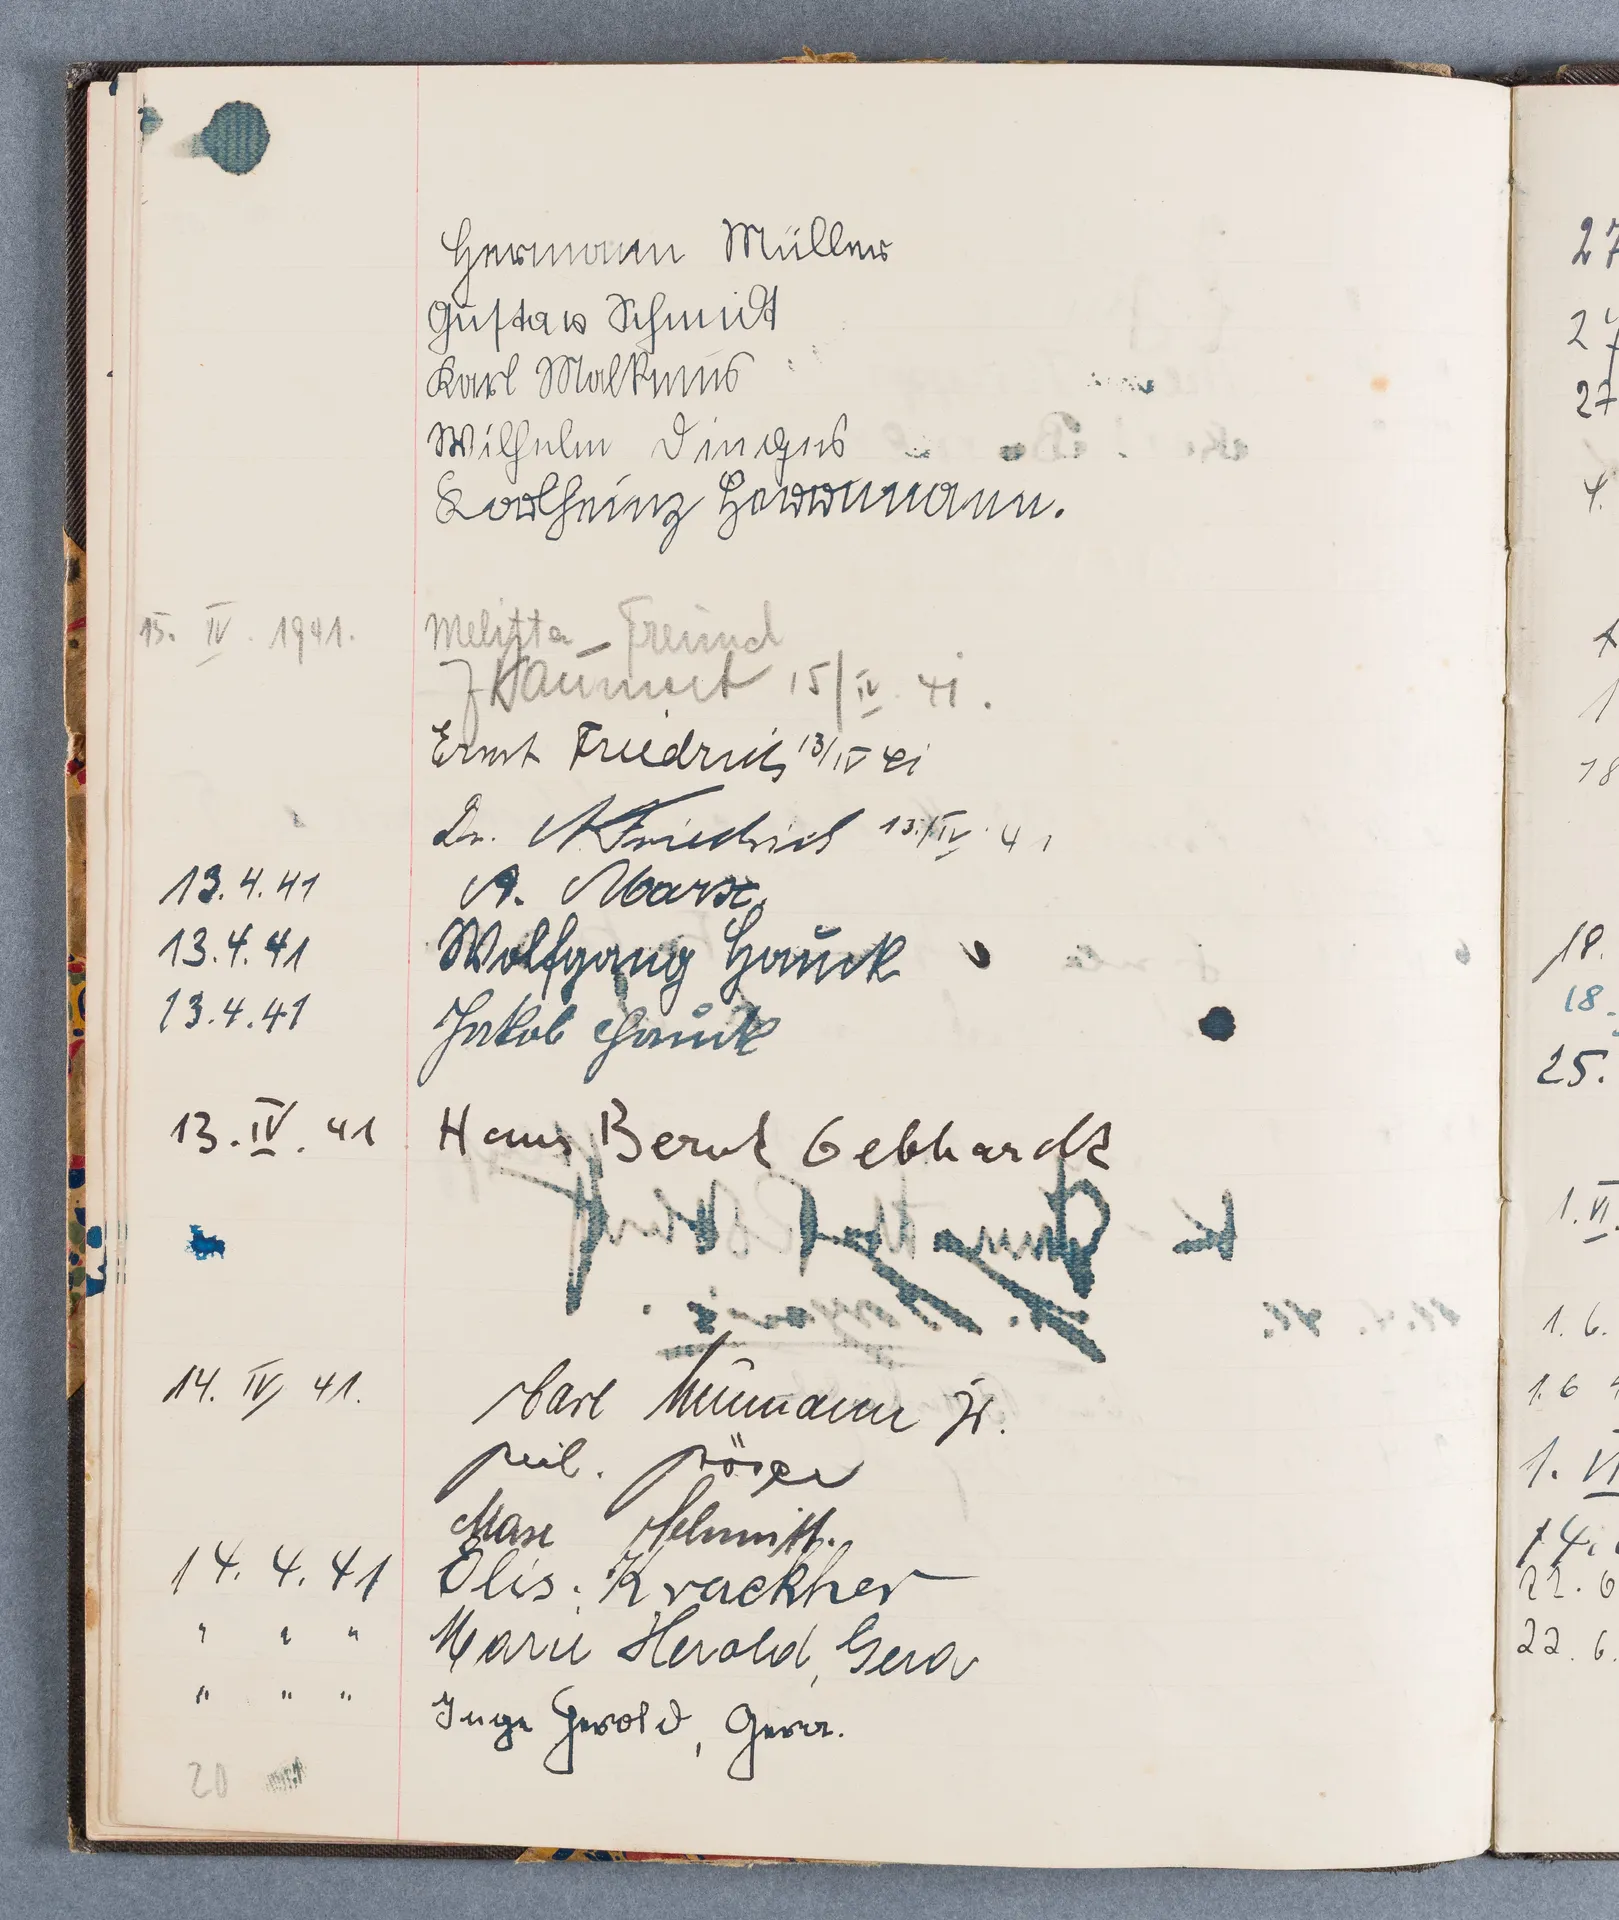 Hermann Müller
Gustav Schmidt
Karl Malkmus
Wilhelm Dinges
Karlheinz Herrmann.
15. IV. 1941. Melitta Freund
15/IV. 41.
Ernst Friedrich 13/IV 41
Dr. A Friedrich 13./IV. 41
13.4.41 A. Marx.
13.4.41 Wolfgang Hauck
13.4.41 Jakob Hauck
13. IV. 41 Hans Bernt Gebhardt
14. IV. 41. Carl Neumann jr.
phil.
Max Schmitt.
14. 4. 41 Elis. Krackher
" " " Marie Herold, Gera
" " " Inge Herold, Gera.
20
27
27
27
4.
1
18
18.
18.
25.
1. VI.
1. 6.
1. 6
1. VI
14.
22. 6
22. 6.